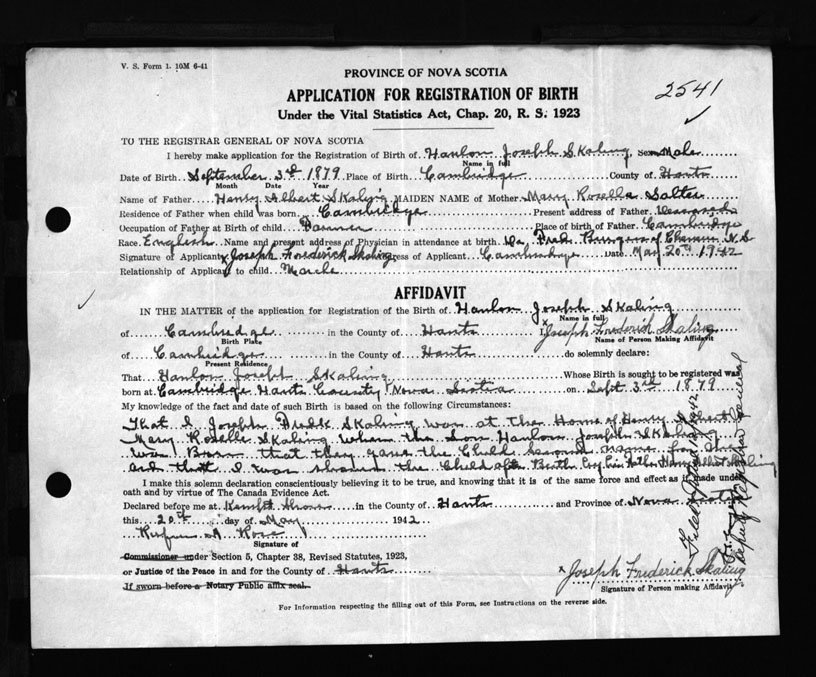 V. S. Form 1. 10M 6-41
PROVINCE OF NOVA SCOTIA
APPLICATION FOR REGISTRATION OF BIRTH
Under the Vital Statistics Act, Chap. 20, R. S. 1923
2541
TO THE REGISTRAR GENERAL OF NOVA SCOTIA
I hereby make application for the Registration of Birth of Hanlon Joseph Skaling Sex Male
Name in full
Date of Birth September 3rd 1879 Place of Birth Cambridge County of Hants
Month Date Year
Name of Father Henry Albert Skaling MAIDEN NAME of Mother Mary Rosella Salter
Residence of Father when child was born Cambridge Present address of Father Deceased
Occupation of Father at Birth of child Farmer Place of birth of Father Cambridge
Race English Name and present address of Physician in attendance at birth Dr Fred Burgess of N. S
Signature of Applicant x Joseph Frederick Skaling Address of Applicant Cambridge Date May 20th 1942
Relationship of Applicant to child
AFFIDAVIT
IN THE MATTER of the application for Registration of the Birth of Hanlon Joseph Skaling
Name in full
of Cambridge in the County of Hants I, x Joseph Frederick Skaling
Birth Place Name of Person Making Affidavit
of Cambridge in the County of Hants do solemnly declare:
Present Residence
That Hanlon Joseph Skaling Whose Birth is sought to be registered was
born at Cambridge Hants County Nova Scotia on Sept 3rd 1879
My knowledge of the fact and date of such Birth is based on the following Circumstances:
That I Joseph Fredk Skaling was at the Home of Henry Albert &
Mary Rosella Skaling when the Son Hanlon Joseph Skaling
was Born that they gave the Child name
and that I was shown the Child after Birth by Father Henry Albert Skaling
I make this solemn declaration conscientiously believing it to be true, and knowing that it is of the same force and effect as if made under
oath and by virtue of The Canada Evidence Act.
Declared before me at Kempt Shore in the County of Hants and Province of Nova Scotia
this 20th day of May 1942
Rufus A. Rose
Signature of
Commissioner under Section 5, Chapter 38, Revised Statutes, 1923,
or Justice of the Peace in and for the County of Hants
If sworn before a Notary Public affix seal.
x Joseph Frederick Skaling
Signature of Person making Affidavit
For Information respecting the filling out of this Form, see Instructions on the reverse side.
Filed 1942
Deputy Registrar General